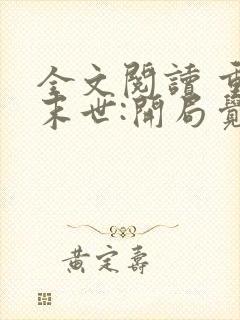 全文閱讀 重
末世:開局覺
黃定壽